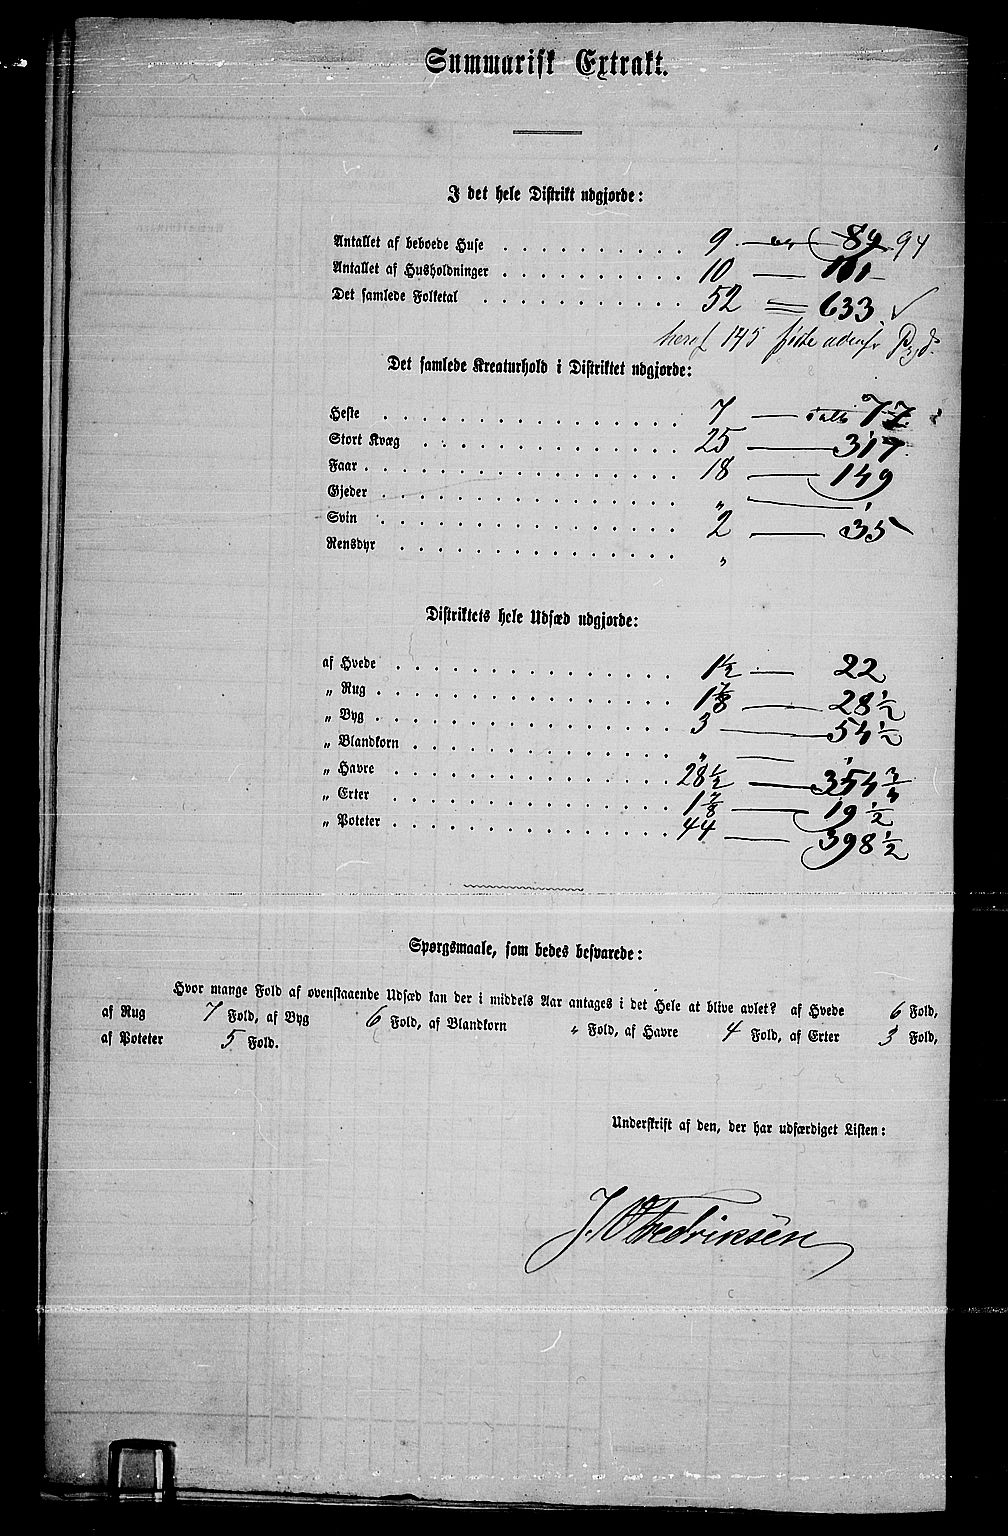 Summarisk Extrakt.
I det hele Distrikt udgjorde:
Antallet af beboede Huse . . . . . . . . 9 — 89 94
Antallet af Husholdninger . . . . . . . . 10 — 101
Det samlede Folketal . . . . . . . . 52 = 633 ✓
heraf 145 fødte udenfr
Det samlede Kreaturhold i Distriktet udgjorde:
Heste . . . . . . . . 7 — ialt 77
Stort Kvæg . . . . . . . . 25 — 317
Faar . . . . . . . . 18 — 149
Gjeder . . . . . . . . „
Svin . . . . . . . . 2 — 35
Rensdyr . . . . . . . . „
Distriktets hele Udsæd udgjorde:
af Hvede . . . . . . . . 1½ — 22
„ Rug . . . . . . . . 1⅞ — 28½
„ Byg . . . . . . . . 3 — 54½
„ Blandkorn . . . . . . . . „ —
„ Havre . . . . . . . . 28½ — 354¾
„ Erter . . . . . . . . 1⅞ — 19½
„ Poteter . . . . . . . . 44 — 398½
Spørgsmaale, som bedes besvarede:
Hvor mange Fold af ovenstaaende Udsæd kan der i middels Aar antages i det Hele at blive avlet? af Hvede 6 Fold,
af Rug 7 Fold, af Byg 6 Fold, af Blandkorn „ Fold, af Havre 4 Fold, af Erter 3 Fold,
af Poteter 5 Fold.
Underskrift af den, der har udfærdiget Listen:
J. Fredriksen